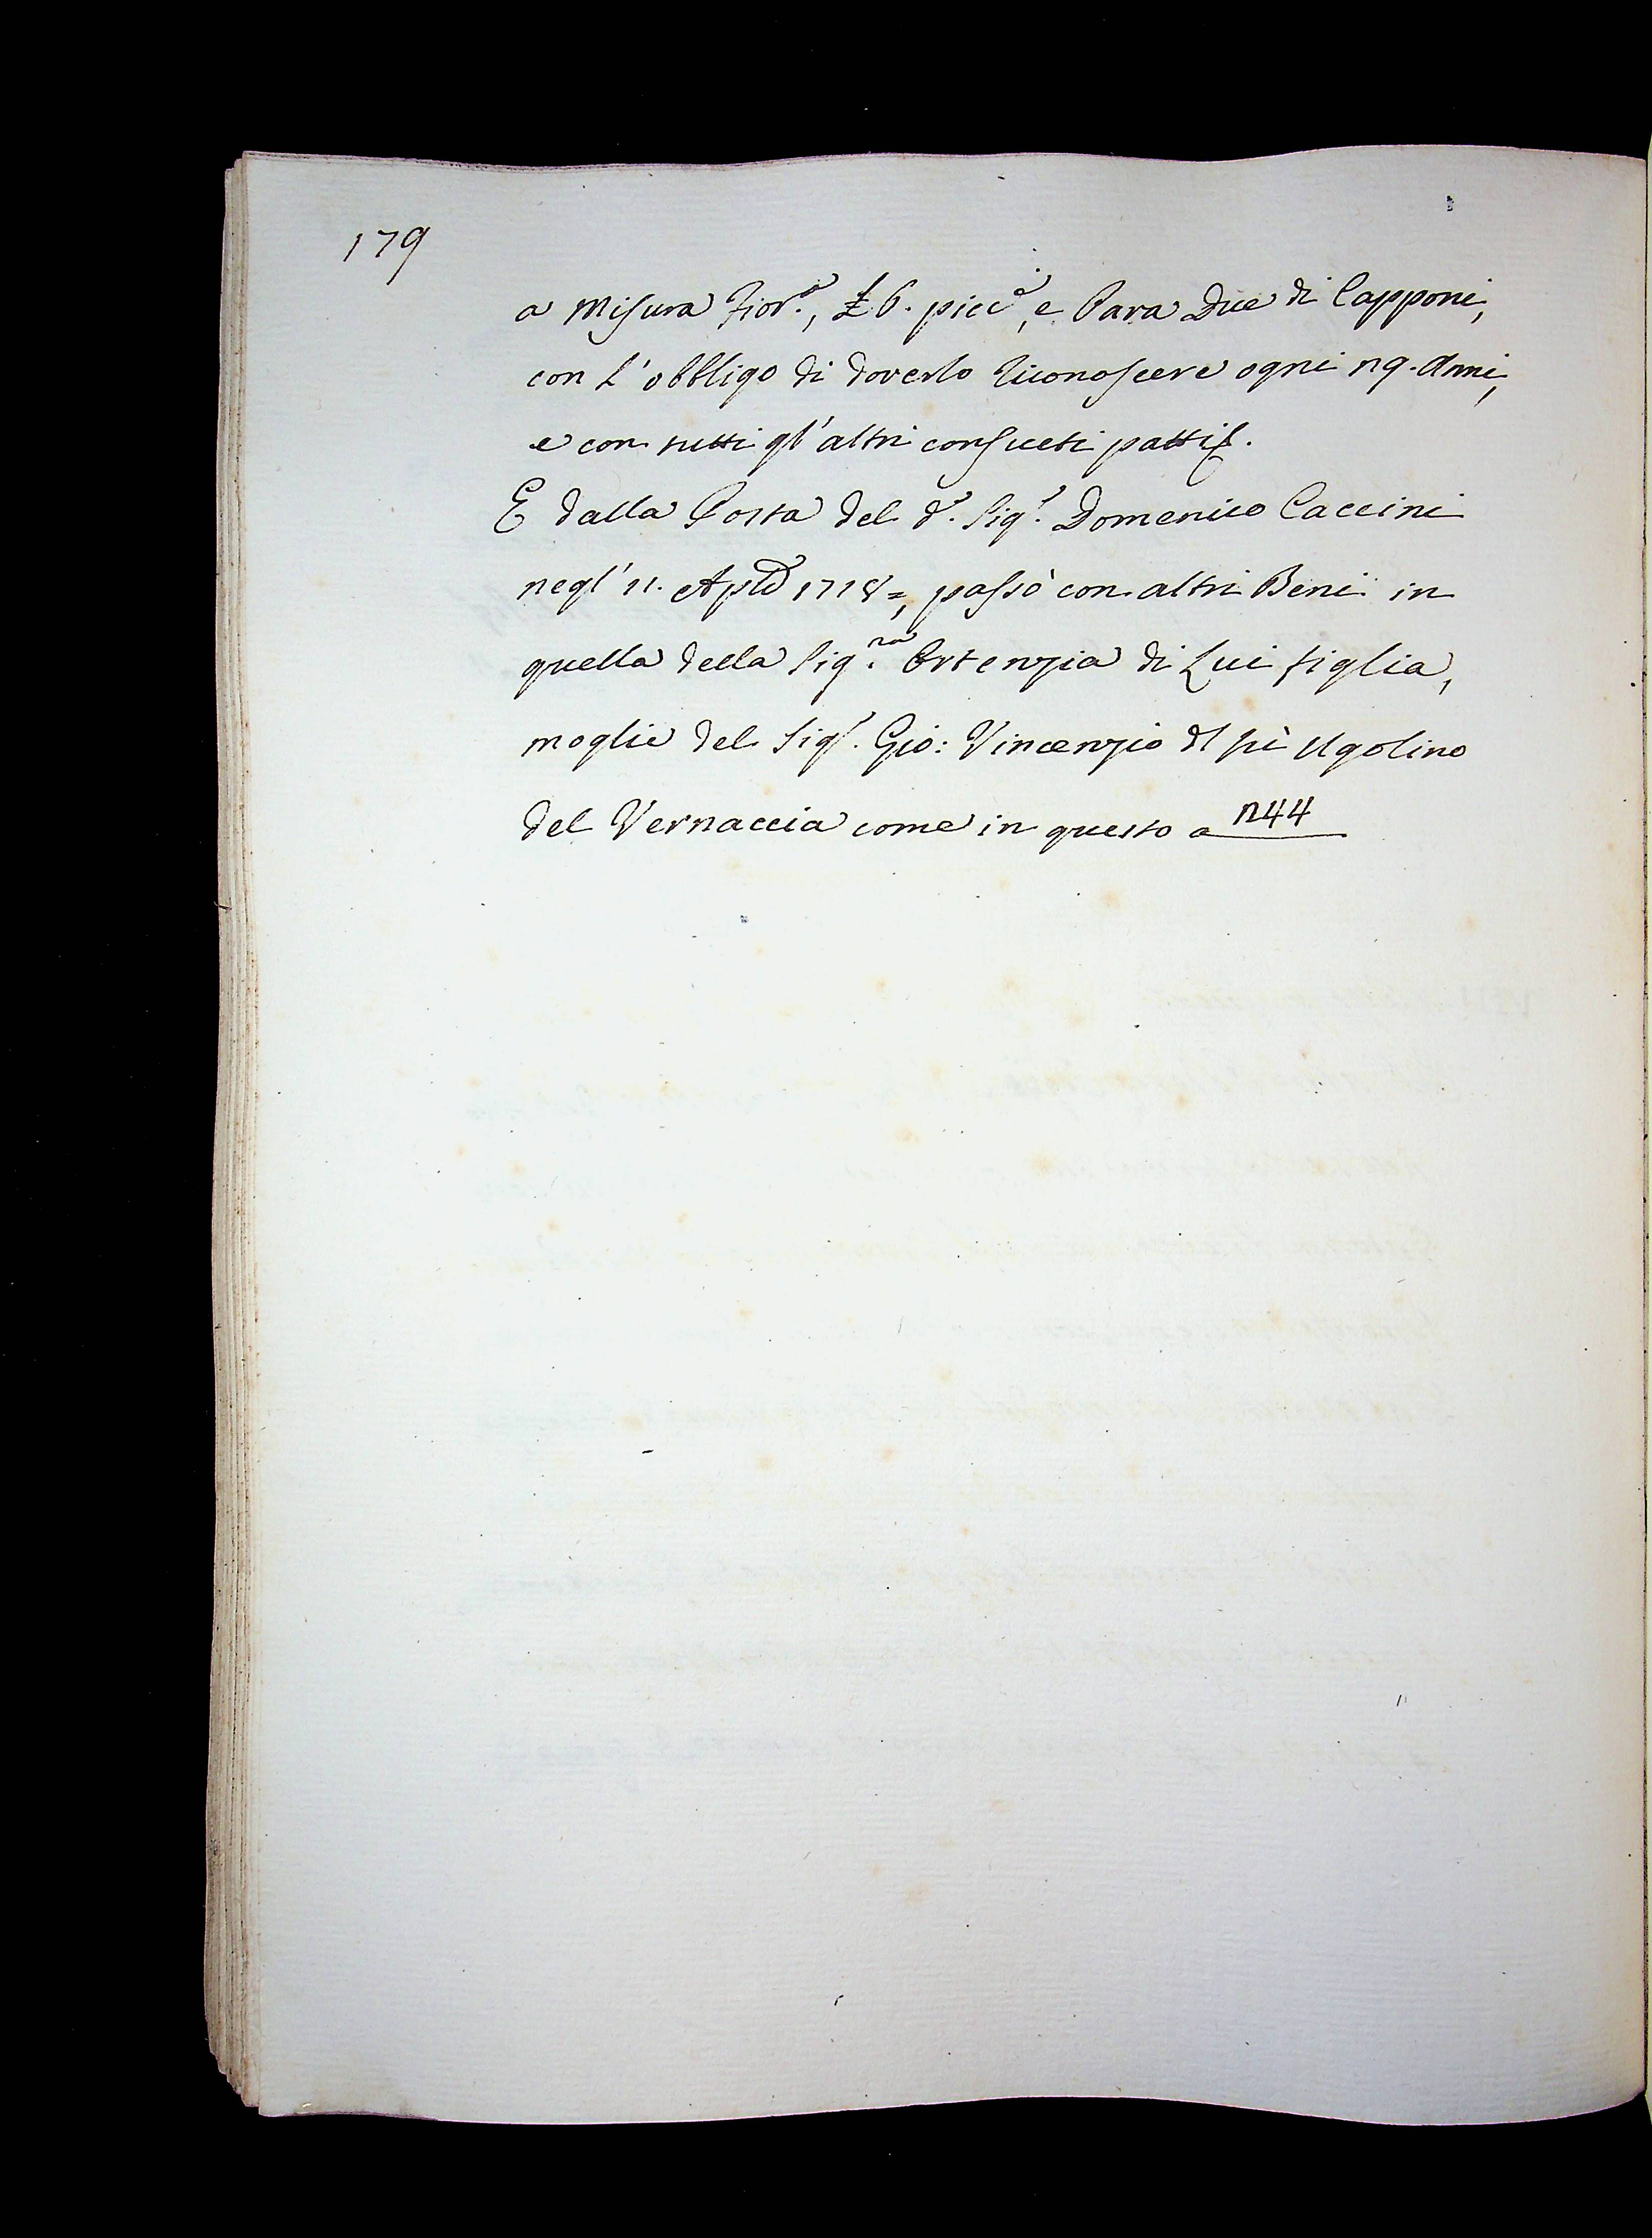 179
a Misura Fior.a, £ 6. picc.e, e Para Due di Capponi,
con l'obbligo di doverlo riconoscere ogni 29. Anni,
e con tutti gl'altri consueti patti &.
E dalla Posta del d.o Sig.r Domenico Caccini
negl'11. Aple 1718=, passò con altri Beni in
quella della Sig.ra Ortenzia di Lui figlia,
moglie del Sig.r Gio: Vincenzio dl fù Ugolino
del Vernaccia come in questo a 244